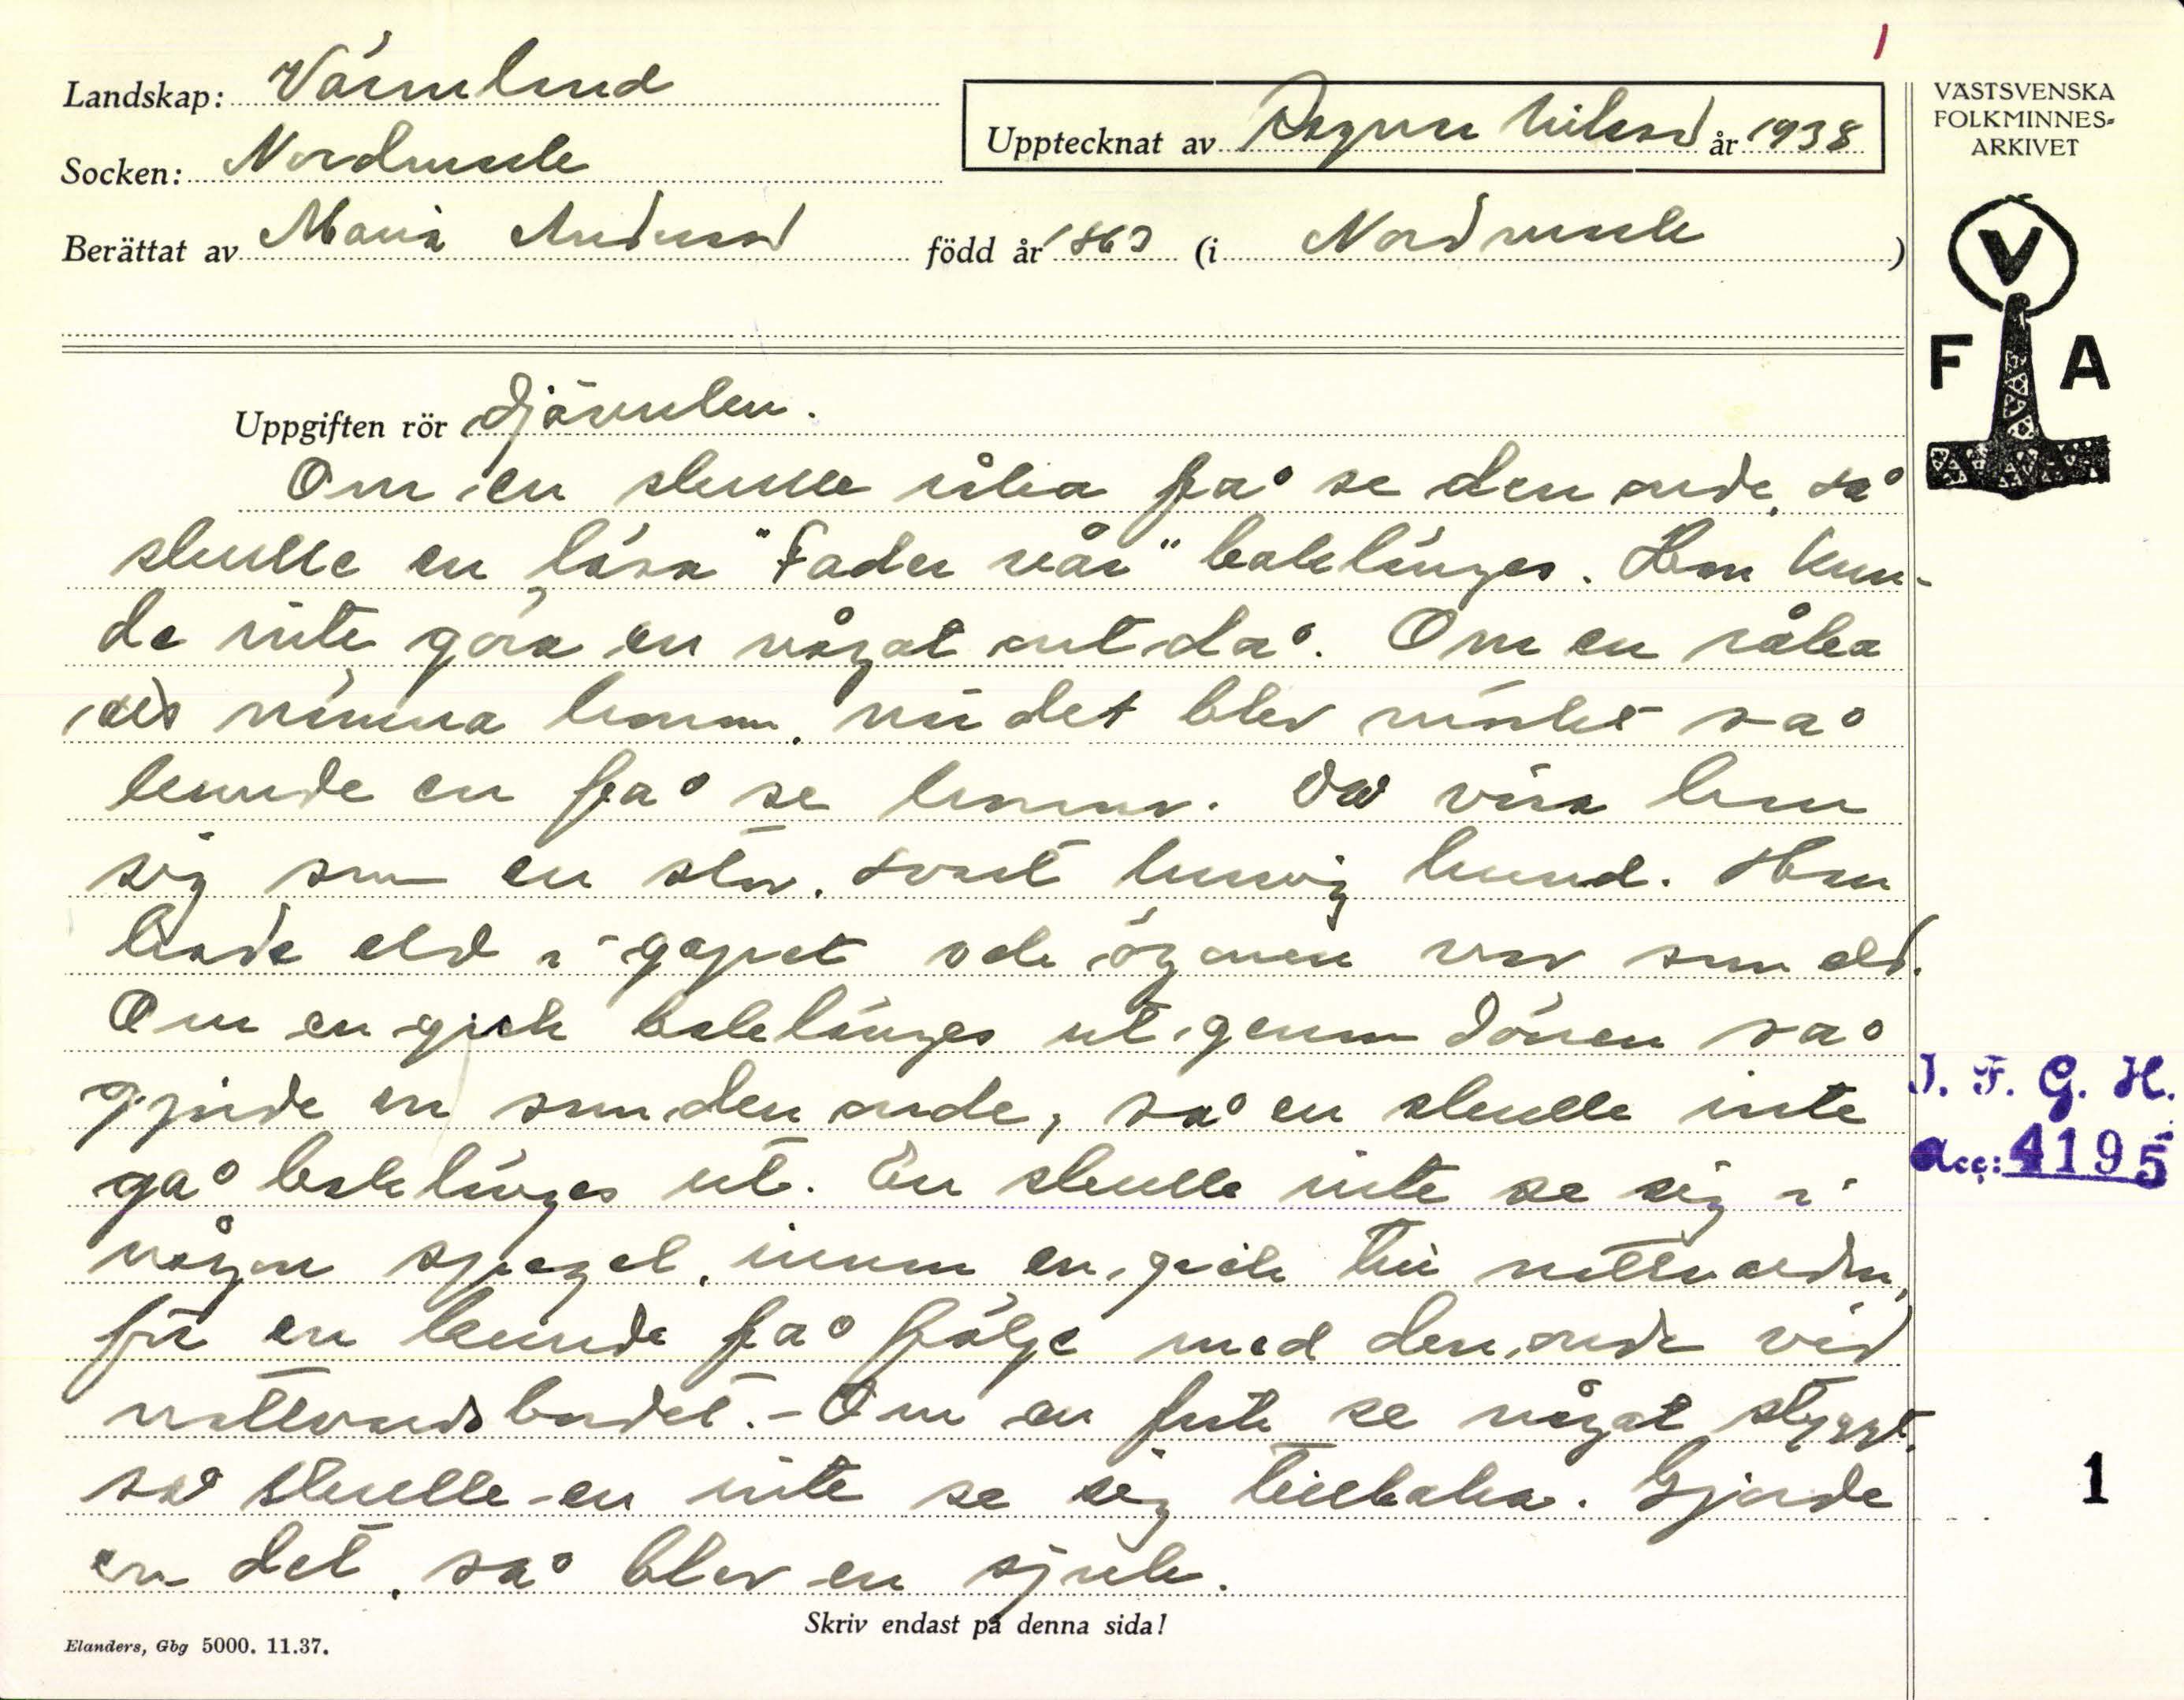 1
Landskap: Värmland
Socken: Nordmark
Upptecknat av Ragnar Nilsson år 1938
Berättat av Maria Andersson född år 1863 (i Nordmark)
VÄSTSVENSKA
FOLKMINNES-
ARKIVET
V
F A
Uppgiften rör djävulen.
Om en skulle råka få se den onde, så
skulle en läsa "Fader vår" baklänges. Han kun-
de inte göra en något ont då. Om en råka
att nämna honom, när det blev mörkt så
kunde en få se honom. Då visa han
sig som en stor, svart lurvig hund. Han
hade eld i gapet och ögonen var som eld.
Om en gick baklänges ut genom dörren så
gjorde en som den onde, så en skulle inte
gå baklänges ut. En skulle inte se sig i
någon spegel, innan en gick till nattvarden,
för en kunde få följe med den onde vid
nattvardsbordet. - Om en fick se något styggt,
så skulle en inte se sig tillbaka. Gjorde
en det, så blev en sjuk.
I. F. G. H.
Acc: 4195
1
Skriv endast på denna sida!
Elanders, Gbg 5000. 11.37.